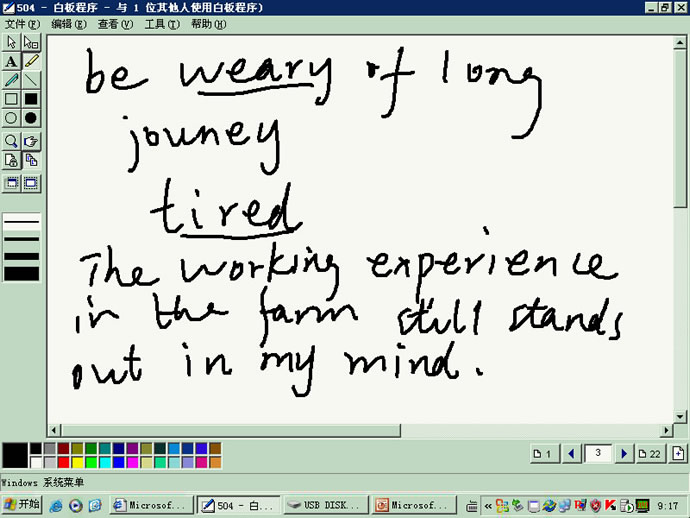 504 - 白板程序 - 与 1 位其他人使用白板程序)
文件(F) 编辑(E) 查看(V) 工具(T) 帮助(H)
A
be weary of long
jouney
tired
The working experience
in the farm still stands
out in my mind.
1 3 22
Windows 系统菜单
开始 Microsof... 504 - 白... USB DISK... Microsof... « 9:17